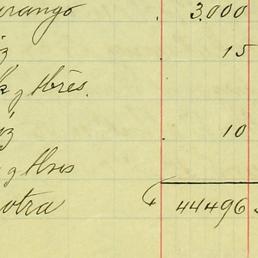 urango 3.000
z 15
y Hres.
z 10
y Hros
otra 44496